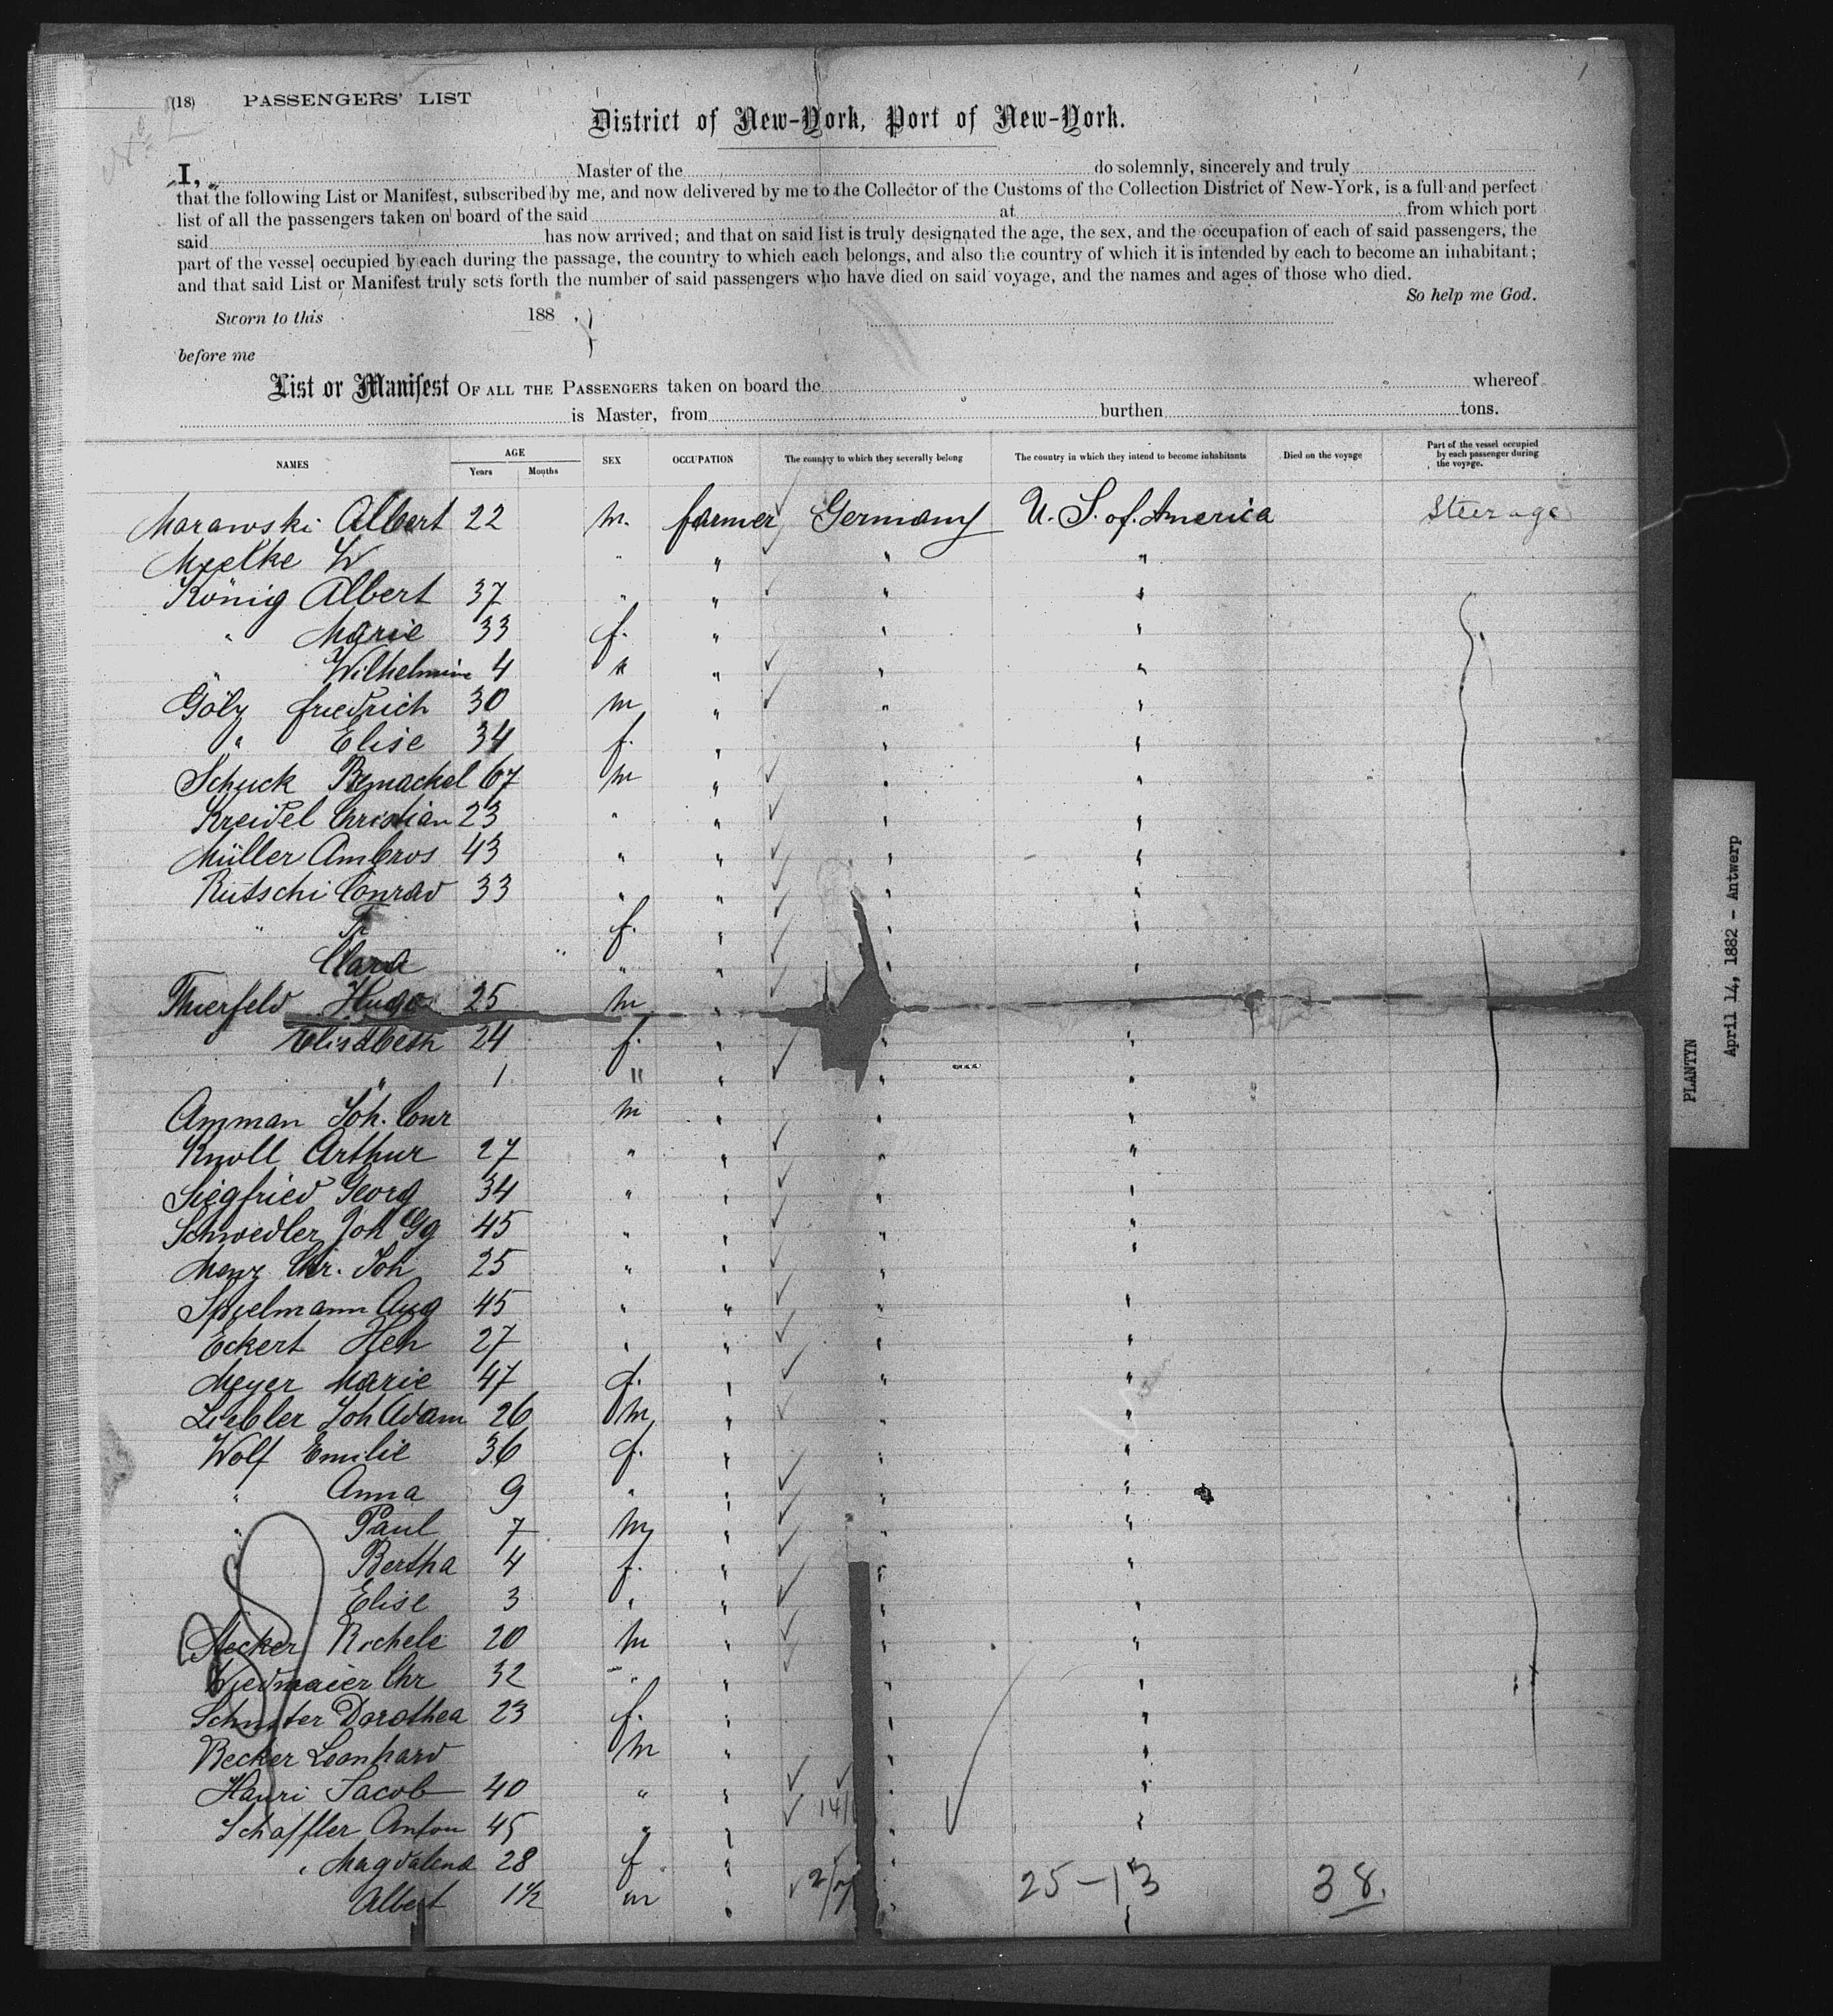 (18) PASSENGERS' LIST
District of New-York, Port of New-York.
I, Master of the do solemnly, sincerely and truly
that the following List or Manifest, subscribed by me, and now delivered by me to the Collector of the Customs of the Collection District of New-York, is a full and perfect
list of all the passengers taken on board of the said at from which port
said has now arrived; and that on said list is truly designated the age, the sex, and the occupation of each of said passengers, the
part of the vessel occupied by each during the passage, the country to which each belongs, and also the country of which it is intended by each to become an inhabitant;
and that said List or Manifest truly sets forth the number of said passengers who have died on said voyage, and the names and ages of those who died.
So help me God.
Sworn to this 188 .
before me
List or Manifest OF ALL THE PASSENGERS taken on board the whereof
is Master, from burthen tons.
NAMES AGE Years Months SEX OCCUPATION The country to which they severally belong The country in which they intend to become inhabitants Died on the voyage Part of the vessel occupied by each passenger during the voyage.
Marawski Albert 22 m. farmer Germany U. S. of America Steerage
Mielke W " " " "
König Albert 37 " " " "
" Marie 33 f. " " "
" Wilhelmine 4 " " " "
Friedrich 30 m " " "
" Elise 34 f. " " "
Schuck 67 m " " "
Kreidel Christian 23 " " " "
Müller Ambros 43 " " " "
Rütschi Conrad 33 " " " "
" Fr f. " " "
Clara " " " "
Thierfeld Hugo 25 m "
Elisabeth 24 f. " " "
" 1 " " " "
Amman Joh. Conr m " " "
Knoll Arthur 27 " " " "
Siegfried Georg 34 " " " "
Schwedler Joh Gg 45 " " " "
Menz Chr. Joh 25 " " " "
Spielmann Aug 45 " " " "
Eckert Hch 27 " " " "
Meyer Marie 47 f. " " "
Liebler Joh Adam 26 m " " "
Wolf Emilie 36 f. " " "
" Anna 9 " " " "
" Paul 7 m " " "
" Bertha 4 f. " " "
Elise 3 " " " "
Hecker Rochele 20 m " " "
Wiedmaier Chr 32 " " " "
Schuster Dorothea 23 f. " " "
Becker Leonhard m " " "
Hauri Jacob 40 " " " "
Schaffler Anton 45 " " " "
" Magdalena 28 f " " "
Albert 1½ m " " "
25-13 38.
PLANTYN
April 14, 1882 - Antwerp